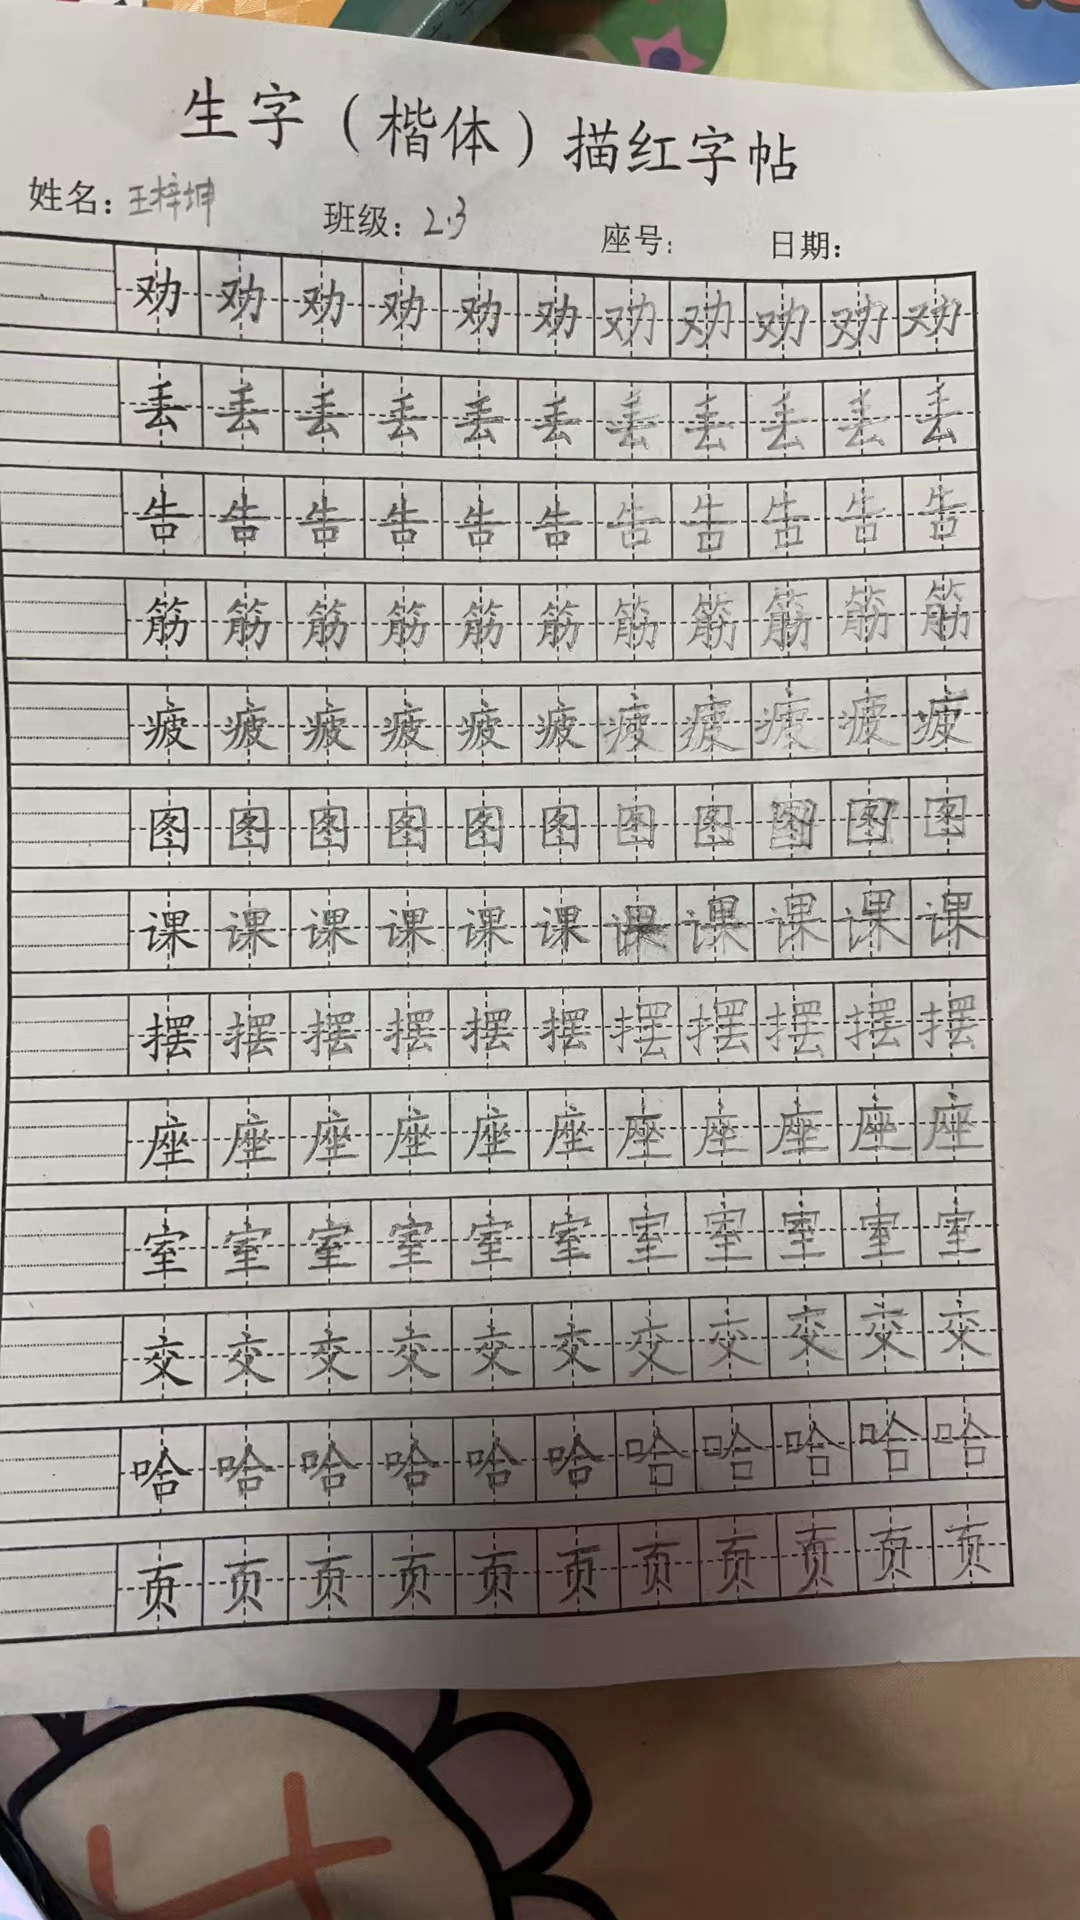 生字（楷体）描红字帖
姓名：王梓坤 班级：2.3 座号： 日期：
劝劝劝劝劝劝劝劝劝劝劝
丢丢丢丢丢丢丢丢丢丢丢
告告告告告告告告告告告
筋筋筋筋筋筋筋筋筋筋筋
疲疲疲疲疲疲疲疲疲疲疲
图图图图图图图图图图图
课课课课课课课课课课课
摆摆摆摆摆摆摆摆摆摆摆
座座座座座座座座座座座
室室室室室室室室室室室
交交交交交交交交交交交
哈哈哈哈哈哈哈哈哈哈哈
页页页页页页页页页页页